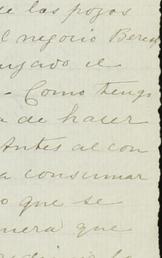 de las pozos
el negocio Bere
el
- Como tengo
a de hacer
Antes al con
a consumar
o que se
nera que